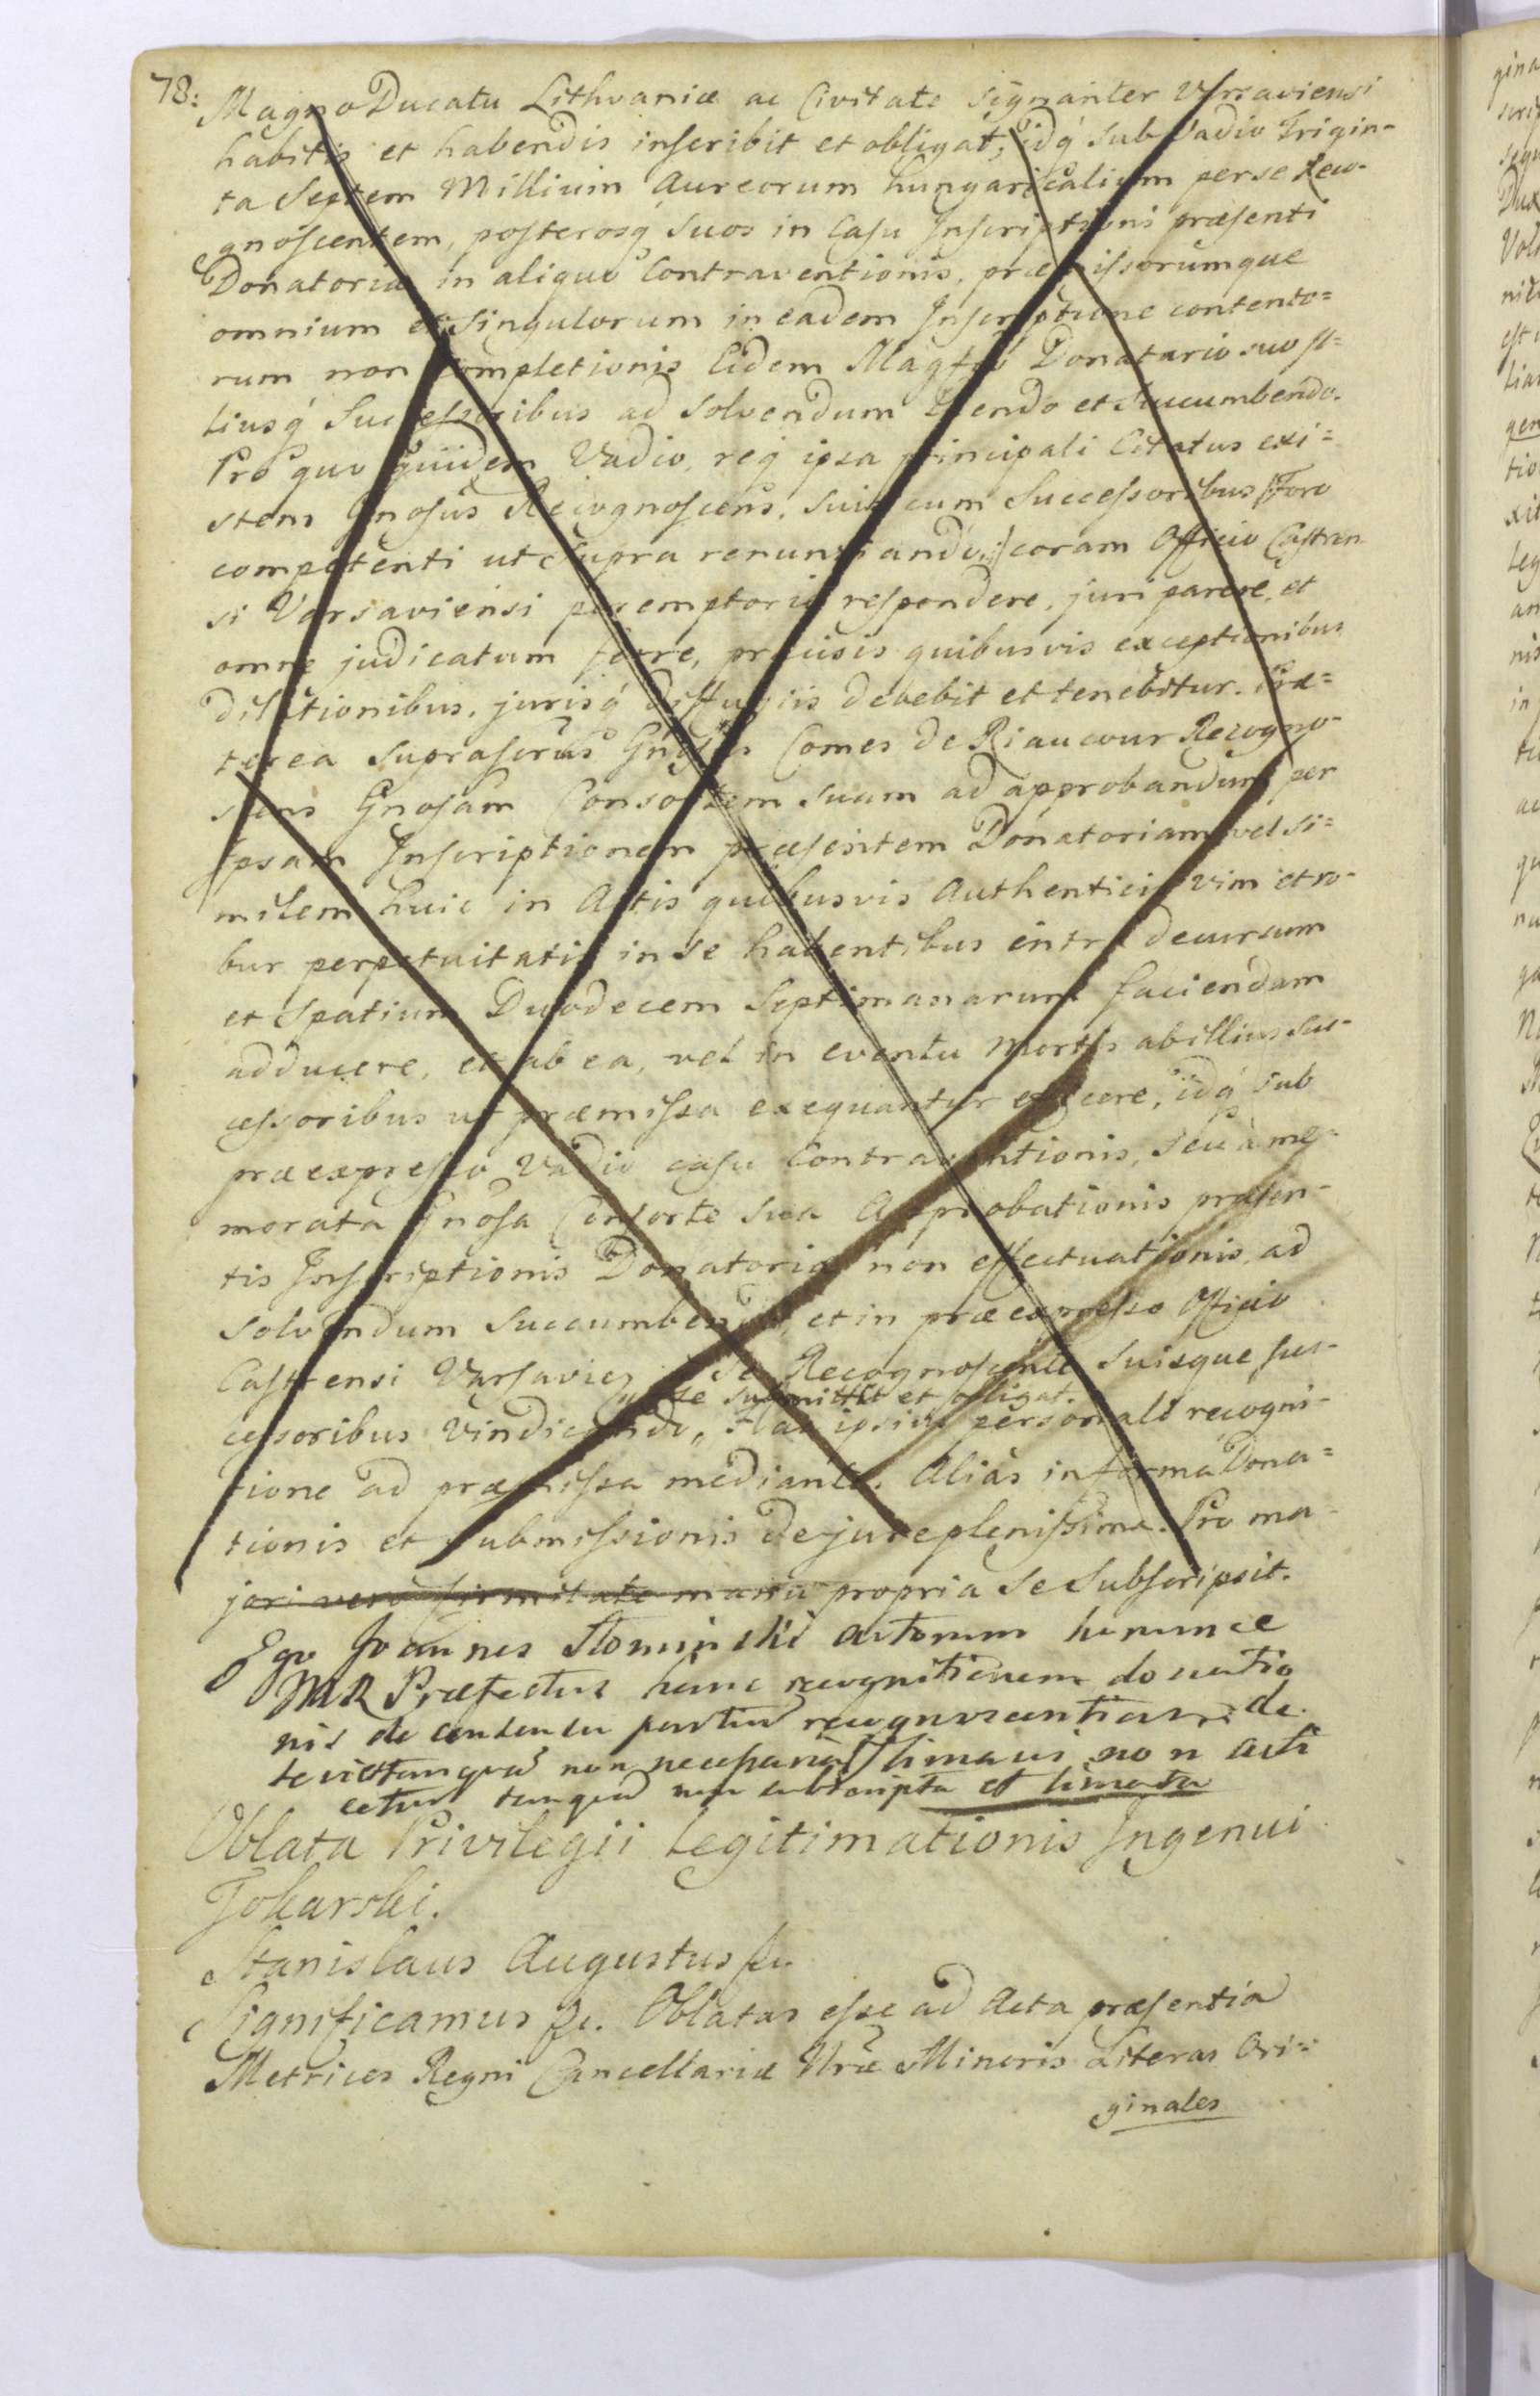 78:
Magno Ducatu Lithvaniæ ac Civitate signanter Varsaviensi
habitis et habendis inscribit et obligat, idq́ sub Vadio Trigin-
ta Septem Millium Aureorum hungaricalium per se Reco-
gnoscentem, posterosq́ suos in Casu Inscriptionis præsenti
Donatoriæ in aliquo Contraventionis, præmissorumque
omnium et singulorum in eadem Inscriptione contento=
rum non completionis Eidem Donatario suo Il=
liusq́ Successoribus ad solvendum et Succumbendo.
Pro quo quidem Vadio, req́ ipsa principali Citatus exi=
stens Gnosus Recognoscens, suis cum Successoribus Foro
competenti ut supra renunciando coram Officio Castren
si Varsaviensi peremptorie respondere, juri parere, et
omne judicatum ferre, præcisis quibusvis exceptionibus
dilationibus, jurisq́ diffugiis debebit et tenebitur. Præ=
terea suprascrus Gnosus Comes de Riaucour Recogno-
scens Gnosam Consortem suam ad approbandum per
Ipsam Inscriptionem præsentem Donatoriam vel si=
milem huic in Actis quibusvis Authenticis vim et ro-
bur perpetuitatis in se habentibus intra decursum
et spatium Duodecem Septimanarum faciendam
adducere, et ab ea, vel in eventu mortis ab illius suc-
cessoribus ut præmissa exequantur efficere, idq́ sub
præexpresso Vadio casu Contraventionis, seu à me-
morata Gnosa Consorte sua Approbationis præsen-
tis Inscriptionis Donatoriæ non effectuationis, ad
solvendum succumbendo, et in præexpresso Officio
Castrensi Varsavien se Recognoscente suisque suc-
se submittit et obligat.
cessoribus Vindicando, ac ipsius personali recogni-
tione ad præmissa mediante. Aliàs in forma Dona=
tionis et submissionis de jure plenissima. Pro ma-
jori vero firmitate manu propria se subscripsit.
Ego Joannes Słominski Actorum
MR Præfectus hanc recognitionem donatio
nis de
non necessaria
tanquam non subscripta et
Oblata Privilegii Legitimationis Ingenui
Tokarski.
Stanislaus Augustus &c.
Significamus &c. Oblatas esse ad Acta præsentia
Metrices Regni Cancellariæ Nræ Minoris Literas Ori=
ginales